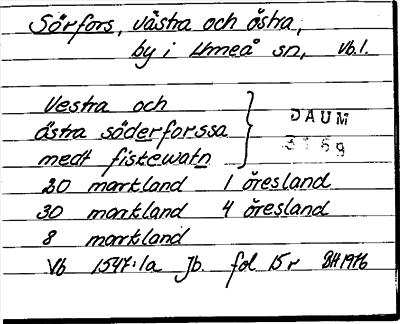 Sörfors, västra och östra,
by i Umeå sn, Vb.l.
Vestra och
östra söderforssa
medt fiskewatn
DAUM
3169
20 markland 1 öresland
30 markland 4 öresland
8 markland
Vb 1547:1a Jb. fol 15 r BH 1976